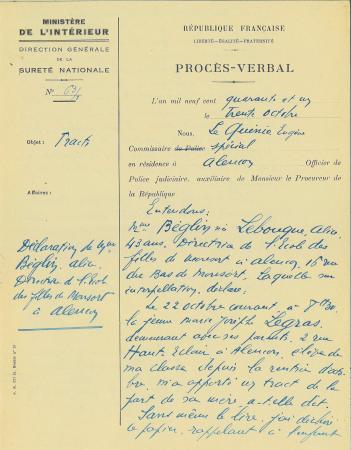 MINISTÈRE
DE L'INTÉRIEUR
DIRECTION GÉNÉRALE
DE LA
SURETÉ NATIONALE
N° 63/1
Objet : Tracts
Affaires :
Déclaration de Mme
Béglin, Alice
Directrice de l'Ecole
des filles de Monsort
à Alençon
RÉPUBLIQUE FRANÇAISE
LIBERTÉ—ÉGALITÉ—FRATERNITÉ
PROCÈS-VERBAL
L'an mil neuf cent quarante et un
le Trente Octobre
Nous, Le Eugène
Commissaire de Police spécial
en résidence à Alençon Officier de
Police judiciaire, auxiliaire de Monsieur le Procureur de
la République
Entendons :
Mme Béglin née Lebougue, Alice,
43 ans, Directrice de l'Ecole des
filles de Monsort à Alençon, 16 rue
du Bas de Monsort, Laquelle sur
interpellation, déclare :
Le 22 octobre courant, à 8h30,
la jeune Marie Josèphe Legras,
demeurant avec ses parents, 2 rue
Haut Eclair à Alençon, élève de
ma classe depuis la rentrée d'octo-
bre, m'a apporté un tract de la
part de sa mère a-t-elle dit.
Sans même le lire, j'ai déchiré
le papier, rappelant à l'enfant